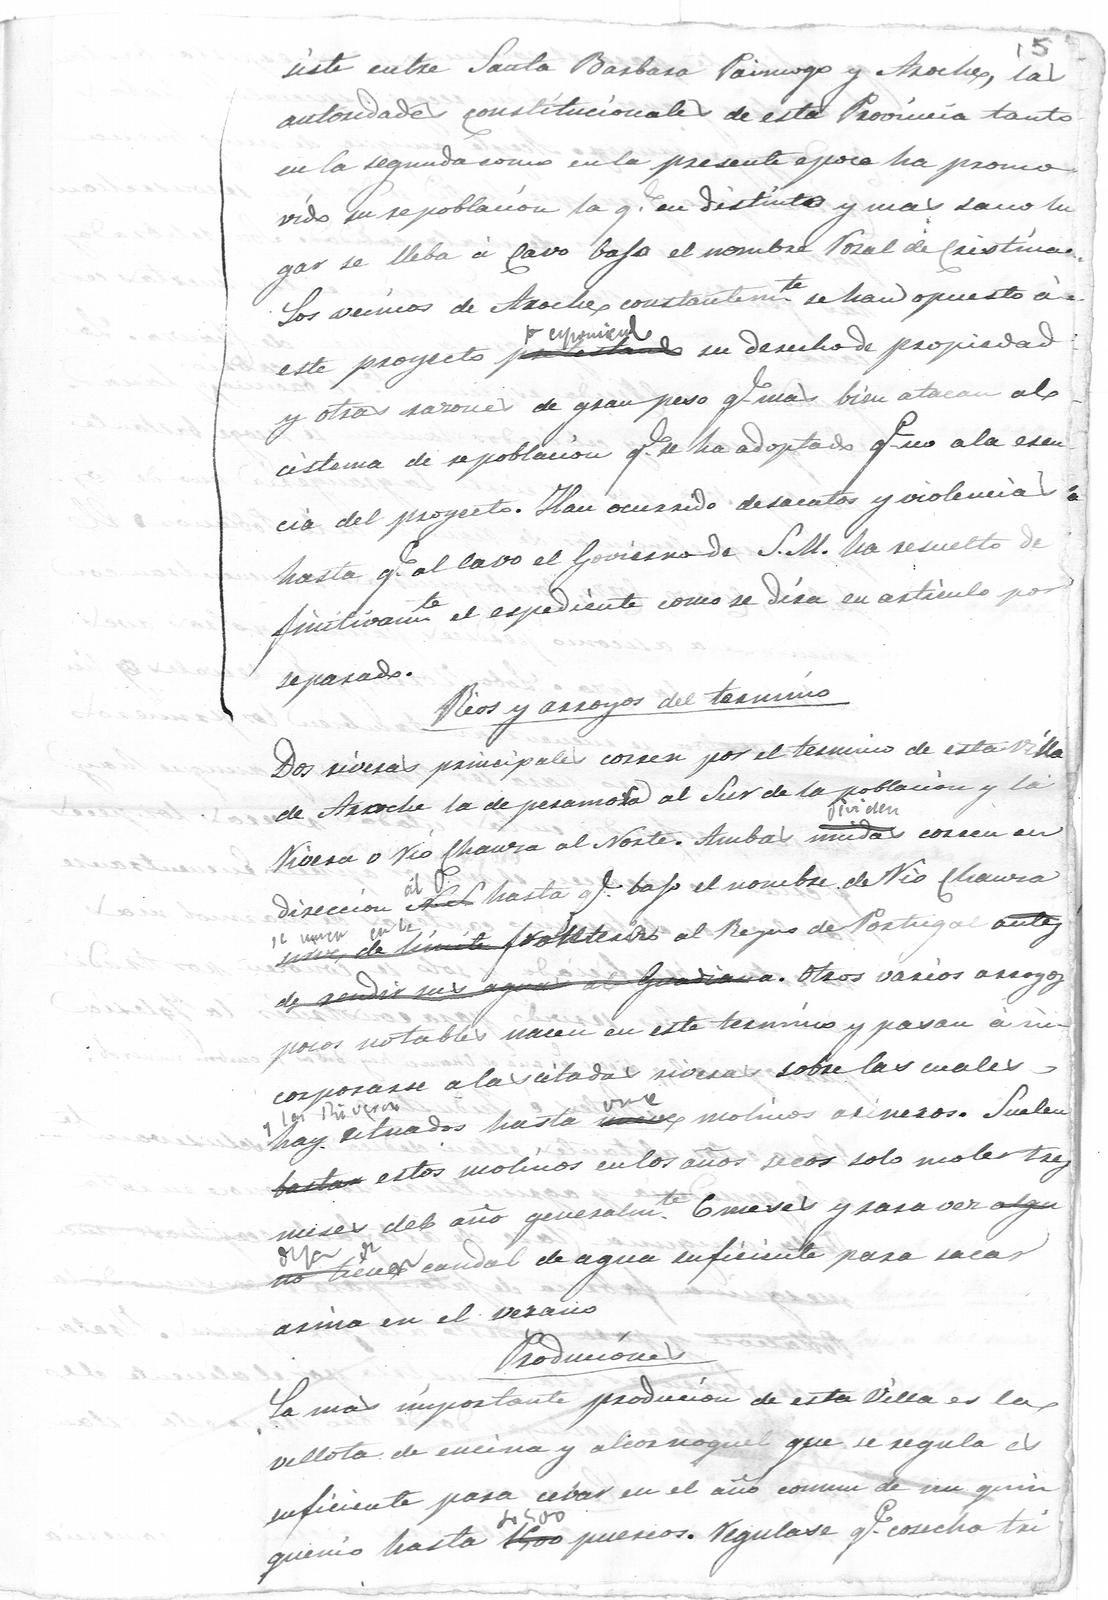 15
siste entre Santa Barbara Paimogo y Aroche, las
autoridades constitucionales de esta Provincia tanto
en la segunda como en la presente epoca ha promo
vido su repoblacion la q.e en distinto y mas sano lu
gar se lleba á cavo bajo el nombre Rosal de Cristina.
Los vecinos de Aroche constantem.te se han opuesto á
esponiendo
este proyecto protestando su derecho de propiedad
y otras razones de gran peso q.e mas bien atacan al
cistema de repoblacion q.e se ha adoptado q.e no a la esen
cia del proyecto. Han ocurrido desacatos y violencias
hasta q.e al cavo el Govierno de S.M. ha resuelto de
finitivam.te el espediente como se dira en articulo por
separado.
Rios y arroyos del termino
Dos riveras principales corren por el termino de esta Villa
de Aroche la de peramora al Sur de la poblacion y la
Rivera o Rio Chanza al Norte. Ambas unidas corren en
direccion hasta q.e bajo el nombre de Rio Chanza
sirve de limite fronterizo al Reyno de Portugal antes
de rendir sus aguas al Guadiana. Otros varios arroyos
pocos notables nacen en este termino y pasan á in
corporarse a las citadas riveras sobre las cuales
y las Riveras once
hay situados hasta nueve molinos arineros. Suelen
bastan estos molinos en los años secos solo moler tres
meses del año generalm.te 6 meses y rara vez algu
dejan de
no tienen caudal de agua suficiente para sacar
arina en el verano
Produciones
La mas importante producion de esta Villa es la
vellota de encina y alcornoque que se regula es
suficiente para cebar en el año comun de un quin
quenio hasta 1500 puercos. Regulase q.e cosecha tri